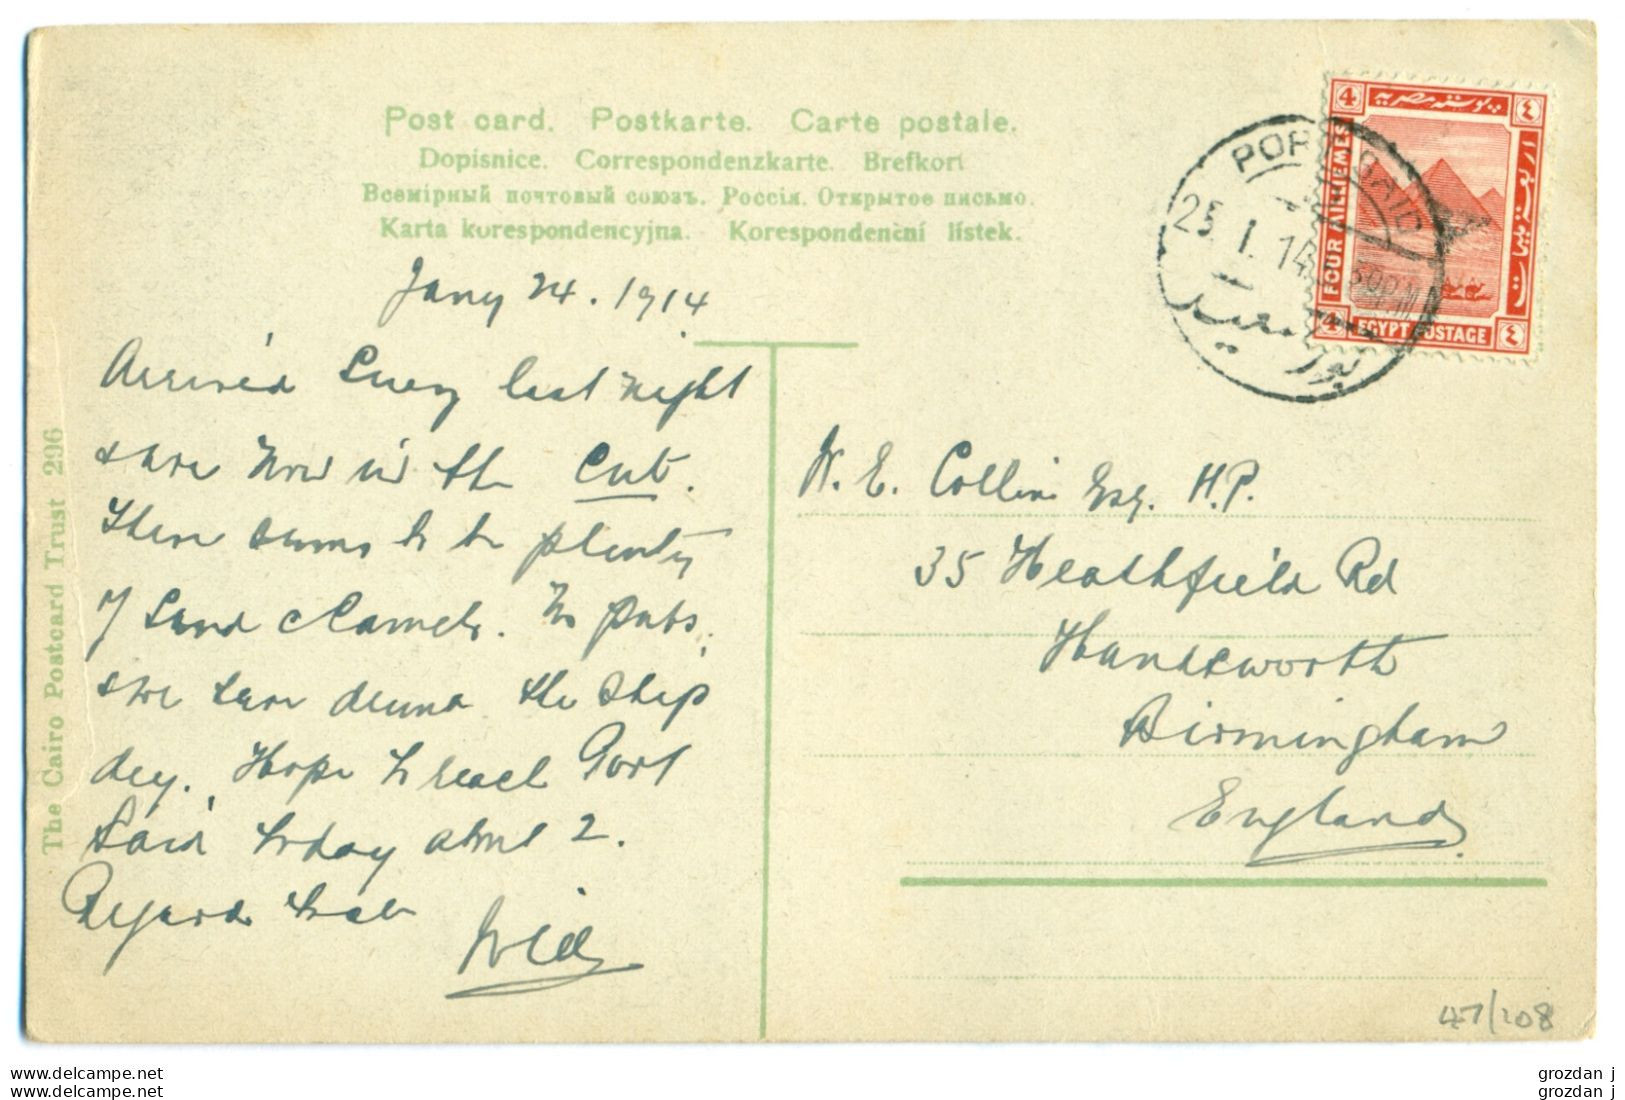 Post card. Postkarte. Carte postale.
Dopisnice. Correspondenzkarte. Brefkort
Всемірный почтовый союзъ. Россія. Открытое письмо.
Karta korespondencyjna. Korespondenční lístek.
The Cairo Postcard Trust 296
4 بوستة مصرية ٤
FOUR MILLIEMES
4 EGYPT POSTAGE ٤
PORT SAID
25 I 14
بور سعيد
Jany 24. 1914
Arrived Suez last night
& are now in the Cut.
There seems to be plenty
of sand & camels. No pubs,
& we have drunk the ship
dry. Hope to reach Port
Said today about 2.
Regards to all
Will
W. E. Collins Esq. H.P.
35 Heathfield Rd
Handsworth
Birmingham
England
47/108
grozdan j
grozdan j